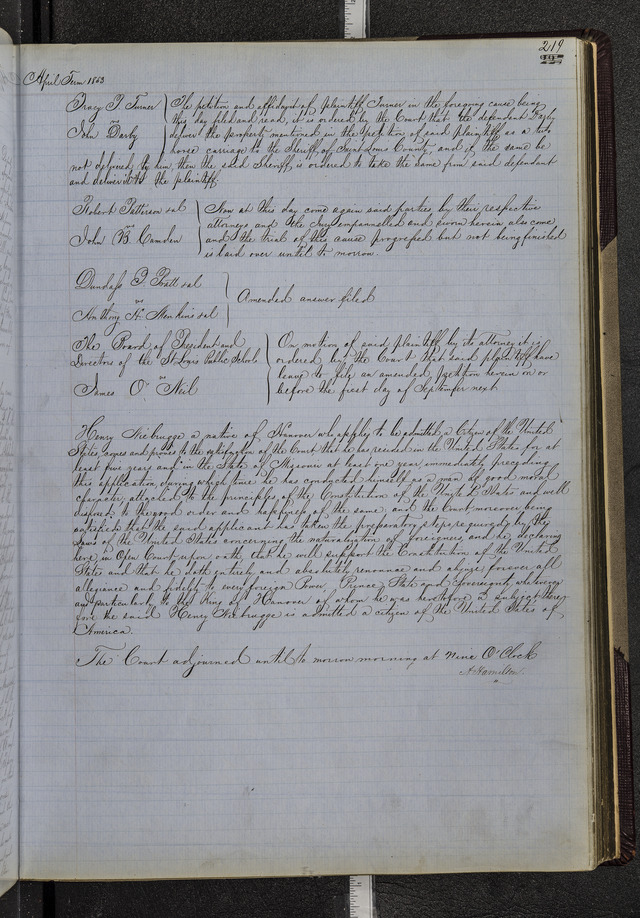 219
April Term 1853
Tracy P. Turner
vs
John Darby
The petition and affidavit of plaintiff Turner in the foregoing cause, being
this day filed and read, it is ordered by the Court that the defendant Darby
deliver the property mentioned in the petition of said plaintiff as a two
horse carriage to the Sheriff of Saint Louis County, and if the same be
not delivered by him, then the said Sheriff is ordered to take the same from said defendant
and deliver it to the plaintiff
Robert Patterson et al
vs
John B. Camden
Now at this day come again said parties by their respective
attorneys and the Jury empannelled and sworn herein also come
and the trial of this cause progressed but not being finished
is laid over until to morrow.
Pratt et al
vs
Anthony et al
Amended answer filed
The Board of President and
Directors of the St Louis Public Schools
vs
James O'Neil
On motion of said plaintiff by its attorney it is
ordered by the Court that said plaintiff have
leave to file an amended petition herein on or
before the first day of September next
Henry a native of Hanover who applys to be admitted a Citizen of the United
States, comes and proves to the satisfaction of the Court that he has resided in the United States for at
least five years and in the State of Missouri at least one year, immediately preceding
this application, during which time he has conducted himself as a man of good moral
character, attached to the principles of the Constitution of the United States and well
disposed to the good order and happiness of the same, and the Court moreover being
satisfied that the said applicant has taken the preparatory steps required by the
laws of the United States concerning the naturalization of foreigners, and he declaring
here in Open Court upon oath that he will support the Constitution of the United
States and that he doth entirely and absolutely renounce and abjure forever all
allegiance and fidelity to every foreign Power, Prince, State and Sovereignty whatsoever
and particularly to the King of Hanover of whom he was heretofore a subject there-
fore the said Henry is admitted a citizen of the United States of
America.
The Court adjourned until to morrow morning at nine O'Clock
A Hamilton